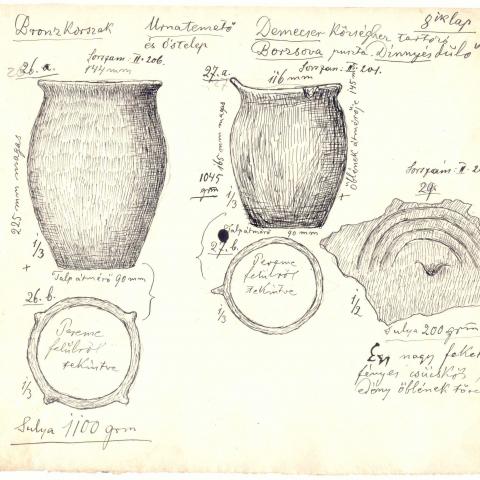 Bronzkorszak
Urnatemető
és Őstelep
Demecser Községhez tartozó
Borzsova puszta. Dinnyés dűlő
26. a.
Sorszám: II. 206.
144 mm
225 mm magas
1/3
+
Talpátmérő 90 mm
26. b.
Pereme
felülről
tekintve
1/3
Sulya 1100 grm
27. a.
Sorszám: II. 201.
116 mm
165 mm magas
1045
grm
1/3
+ Öblének átmérője 145 mm
Talpátmérő 90 mm
27. b.
Pereme
felülről
tekintve
1/3
Sorszám: II. 2
29.
1/2
Sulya 200 grm
Egy nagy feket
fényes csücskös
edény öblének töre